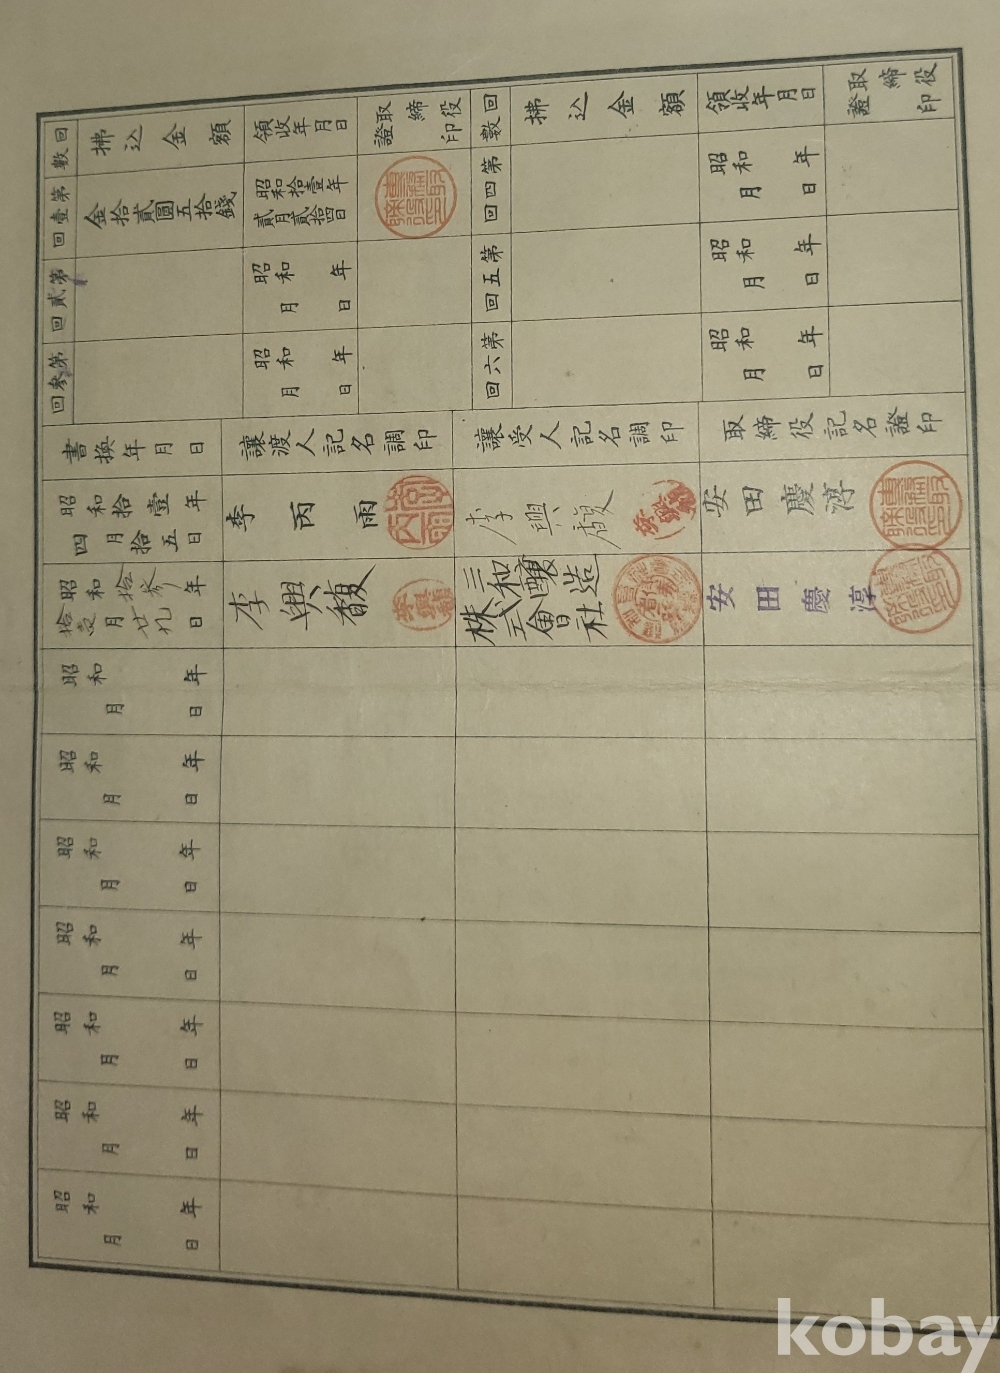 回數
拂込金額
領收年月日
取締役證印
第壹回
金拾貳圓五拾錢
昭和拾壹年貳月貳拾四日
第貳回
昭和 年 月 日
第參回
昭和 年 月 日
回數
拂込金額
領收年月日
取締役證印
第四回
昭和 年 月 日
第五回
昭和 年 月 日
第六回
昭和 年 月 日
書換年月日
讓渡人記名調印
讓受人記名調印
取締役記名證印
昭和拾壹年四月拾五日
李丙雨
李興馥
安田慶淳
昭和拾參年拾壹月廿九日
李興馥
三和釀造
株式會社
安田慶淳
昭和 年 月 日
昭和 年 月 日
昭和 年 月 日
昭和 年 月 日
昭和 年 月 日
昭和 年 月 日
昭和 年 月 日
kobay